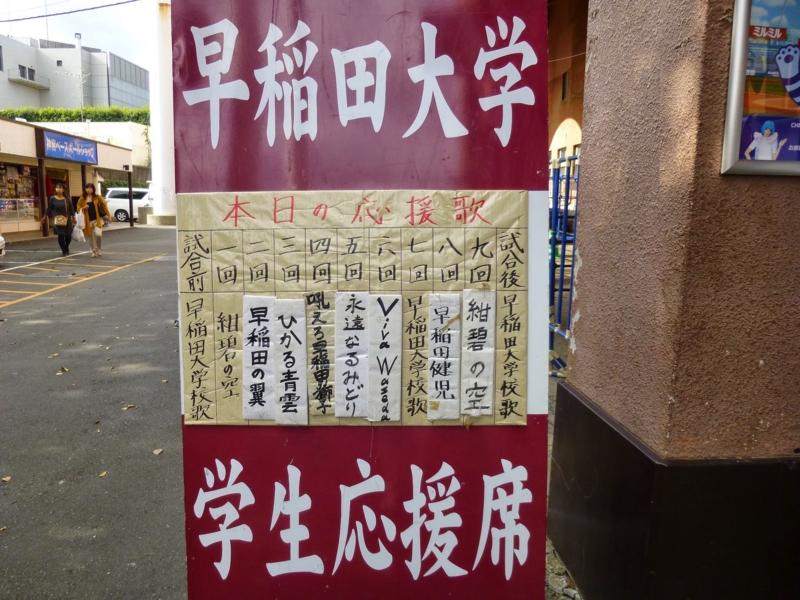 早稲田大学
本日の応援歌
試合前 早稲田大学校歌
一回 紺碧の空
二回 早稲田の翼
三回 ひかる青雲
四回 吼えろ早稲田の獅子
五回 永遠なるみどり
六回 Viva Waseda
七回 早稲田大学校歌
八回 早稲田健児
九回 紺碧の空
試合後 早稲田大学校歌
学生応援席
神宮ベースボールショップ
ミルミル